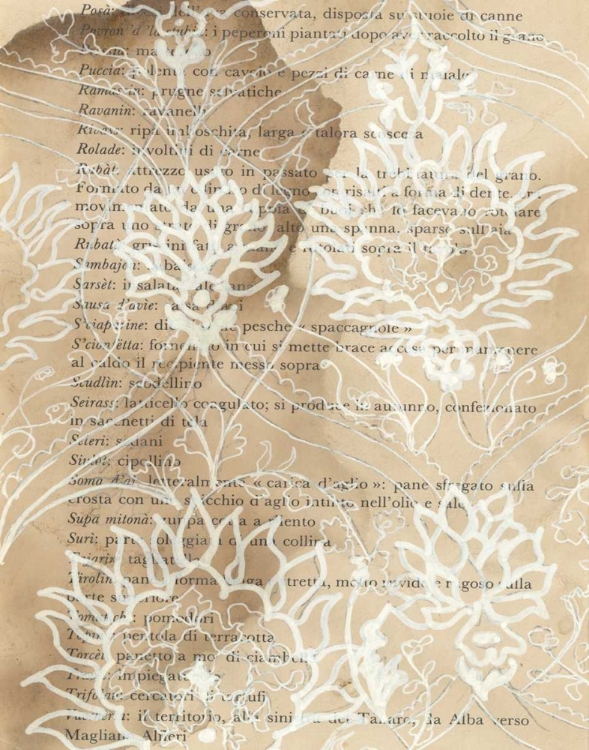 conservata, disposta su stuoie di canne
i peperoni piantati dopo aver raccolto il grano
Puccia: polenta con cavolo e pezzi di carne di maiale
Ramassin: prugne selvatiche
Ravanin: ravanelli
ripa imboschita, larga e talora scoscesa
Rolade: involtini di carne
Rubàt: attrezzo usato in passato per la trebbiatura del grano.
Formato da un cilindro di legno con risalti a forma di dente,
buoi che lo facevano rotolare
sopra uno strato di grano alto una spanna, sparso sull'aia
Rubatà: grissini fatti a mano e rotolati sopra il tavolo
Sambajon:
Sarsèt: insalata
Sausa d'avie: salsa
pesche « spaccagnole »
fornello in cui si mette brace accesa per mantenere
al caldo il recipiente messo sopra
Scudlin: scodellino
Seirass: latticello coagulato; si produce in autunno, confezionato
in sacchetti di tela
Seleri: sedani
cipollino
Soma d'ai: letteralmente « carica d'aglio »: pane sfregato sulla
crosta con uno spicchio d'aglio intinto nell'olio e sale
Supa mitonà: zuppa cotta a lento
Suri: parte soleggiata di una collina
Tajarin: tagliatelle
Tirolin: pane forma lunga stretta, molto ruvido e rugoso sulla
parte superiore
pomodori
pentola di terracotta
Torcèt: panetto a mo' di ciambella
impiccato
Trifolau: cercatori di tartufi
il territorio, alla sinistra del Tanaro, da Alba verso
Magliano Alfieri